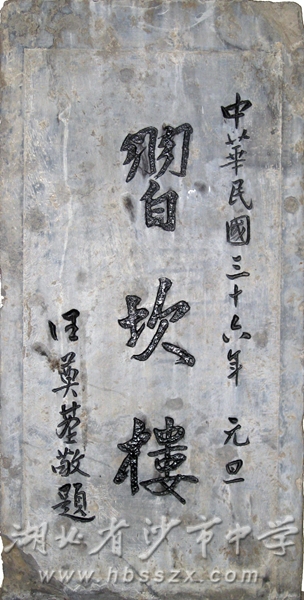 中華民國三十六年 元旦
習坎樓
汪奠基敬題
湖北省沙市中学
www.hbsszx.com